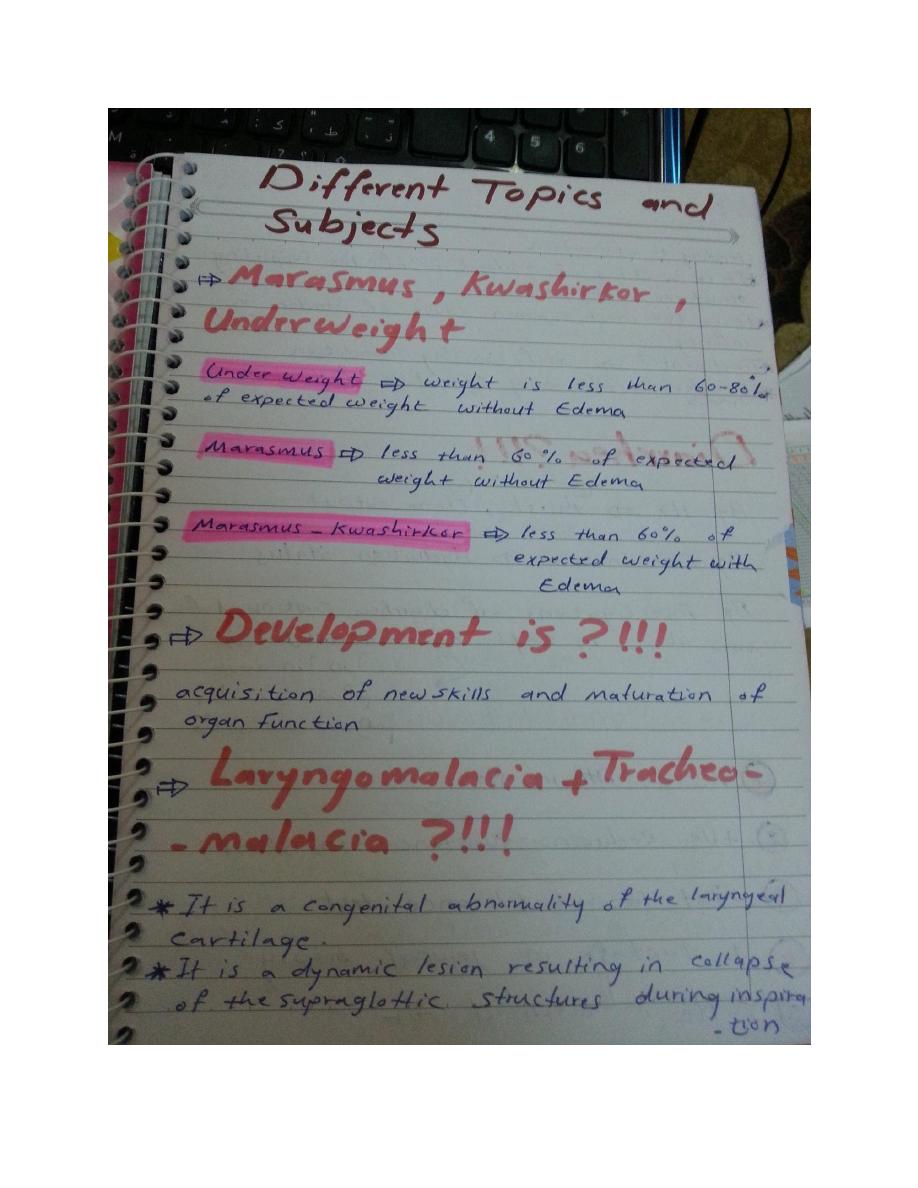 Different Topics and
Subjects
⇨ Marasmus, Kwashirkor,
Underweight
Under weight ⇨ weight is less than 60-80%
of expected weight without Edema
Marasmus ⇨ less than 60% of expected
weight without Edema
Marasmus - Kwashirkor ⇨ less than 60% of
expected weight with
Edema
⇨ Development is ?!!!
acquisition of new skills and maturation of
organ function
⇨ Laryngomalacia + Tracheo-
-malacia ?!!!
* It is a congenital abnormality of the laryngeal
cartilage.
* It is a dynamic lesion resulting in collapse
of the supraglottic structures during inspira
-tion
4 5 6